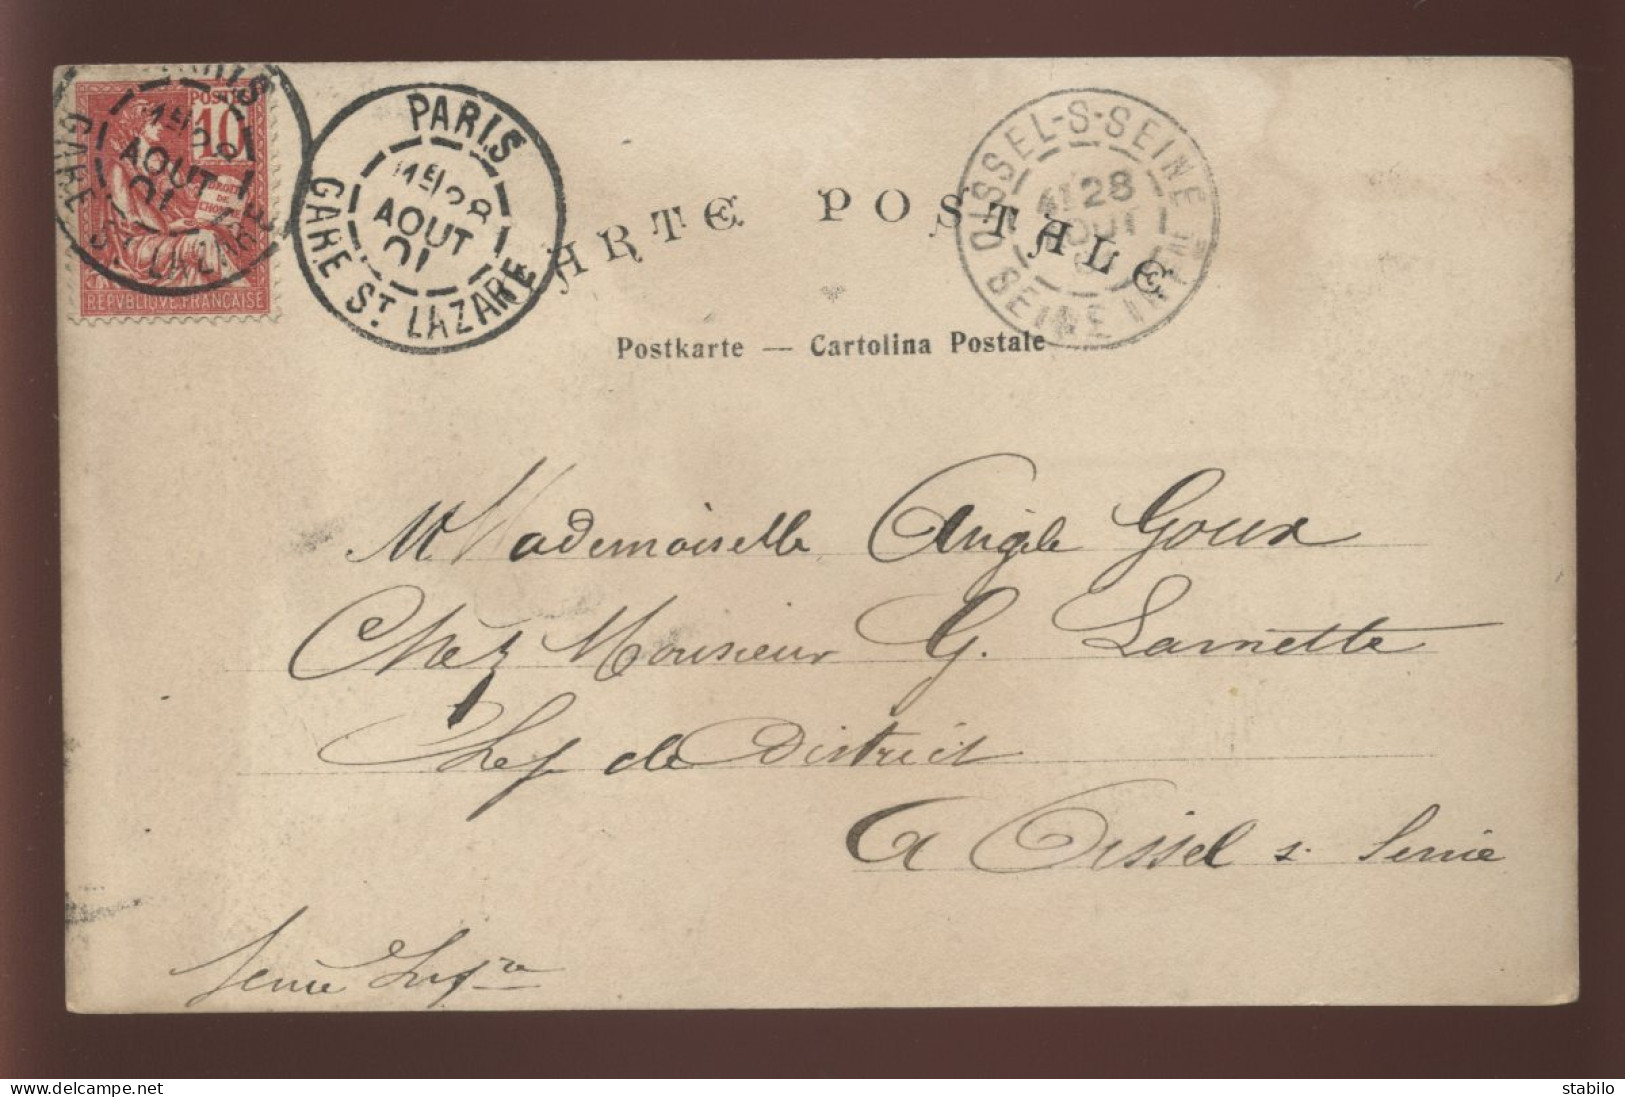 POSTES
10
DROITS
DE
L'HOMME
REPVBLIQVE FRANCAISE
PARIS
1E 28
AOUT
01
GARE ST LAZARE
PARIS
1E 28
AOUT
01
GARE ST LAZARE
OISSEL-S-SEINE
4E 28
AOUT
SEINE INFRE
CARTE POSTALE
Postkarte — Cartolina Postale
M Mademoiselle Angèle Goux
Chez Monsieur G. Larnette
Chef de District
A Oissel s. Seine
Seine Infre
delcampe.net
stabilo